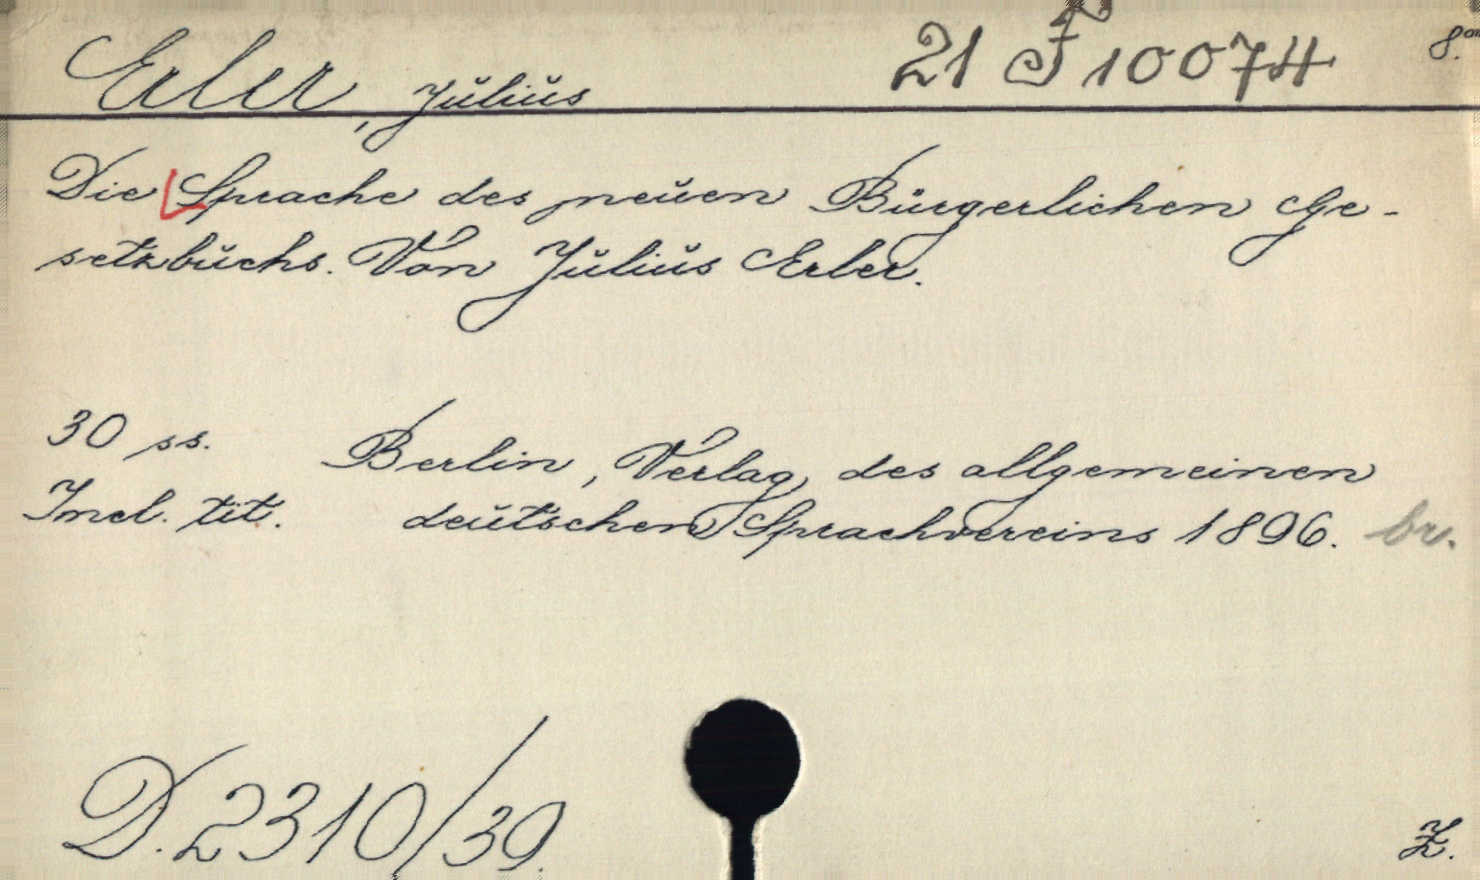 Erler, Julius
21 F 10074
8.°
Die Sprache des neuen Bürgerlichen Ge-
setzbuchs. Von Julius Erler.
30 ss.
Berlin, Verlag des allgemeinen
Incl. tit.
deutschen Sprachvereins 1896. br.
D.2310/39.
Z.